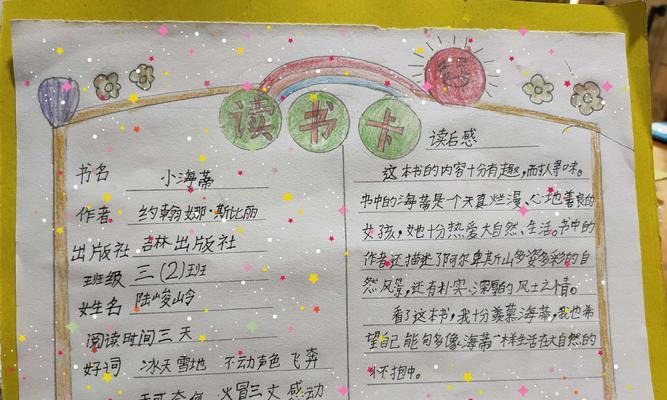 读书卡
书名 小海蒂
作者 约翰娜·斯比丽
出版社 吉林出版社
班级 三(2)班
姓名 陆峻岭
阅读时间 三天
好词 冰天雪地 不动声色 飞奔
无可奈何 火冒三丈 感动
读后感
这本书的内容十分有趣,而扒寻味。
书中的海蒂是个天真烂漫、心地善良的
女孩,她十分热爱大自然、生活。书中的
作者还描述了阿尔卑斯山多姿多彩的自
然风景,还有朴实、深厚的风土之情。
看了这本书,我十分羡慕海蒂,我也希
望自己能句多像海蒂一样生活在大自然的
怀抱中。